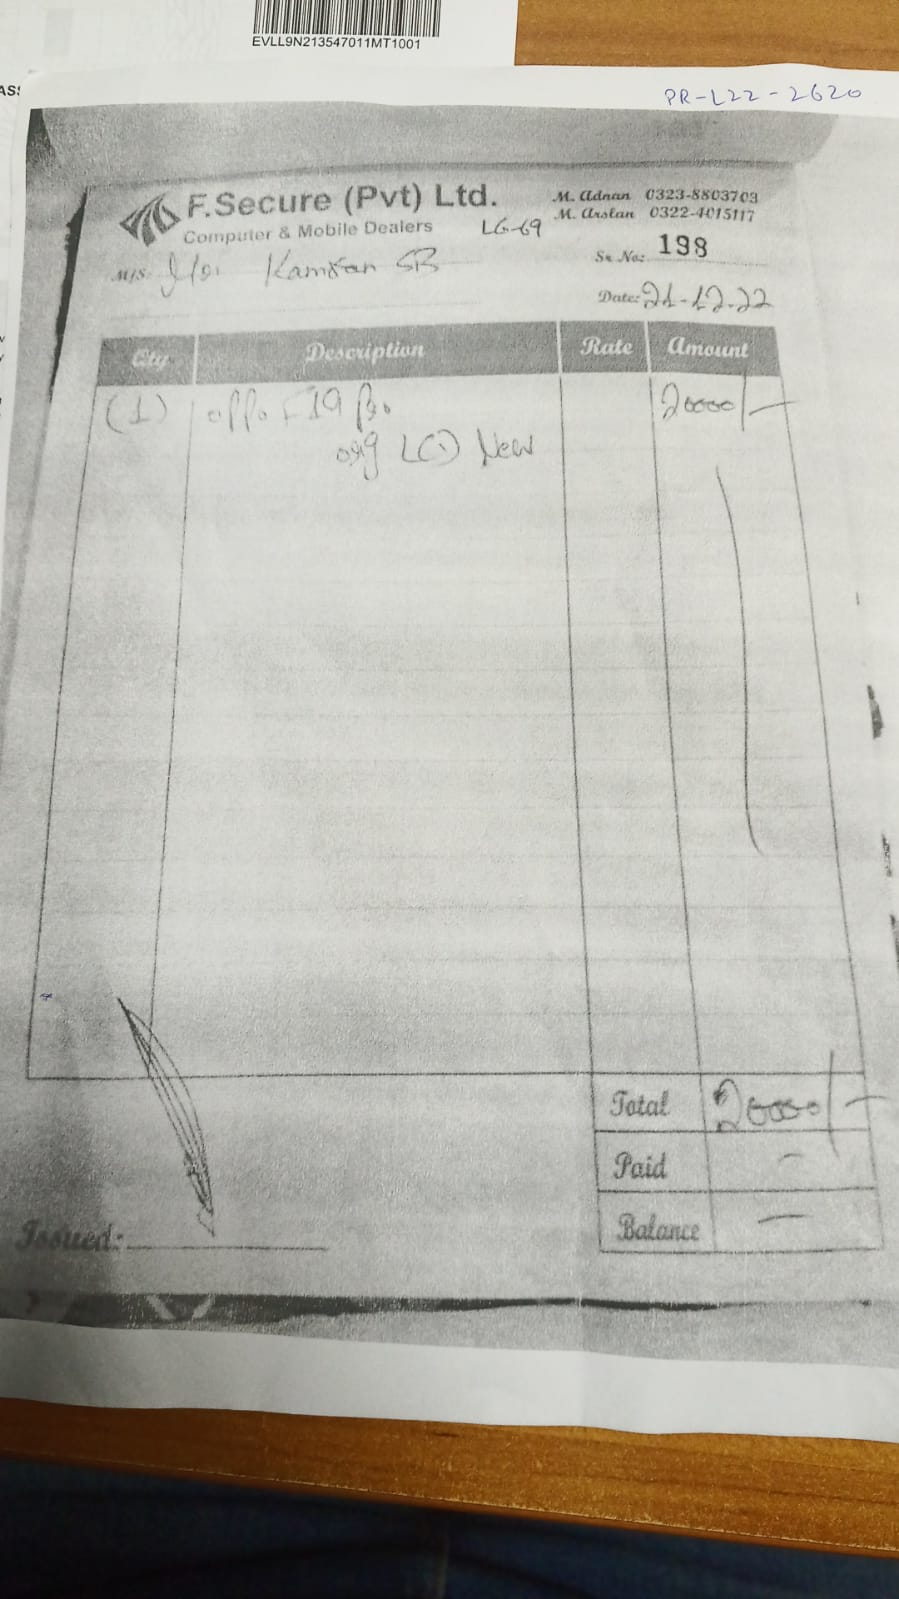 EVLL9N213547011MT1001
PR-L22-2620
F.Secure (Pvt) Ltd.
Computer & Mobile Dealers
LG-69
M. Adnan 0323-8803703
M. Arslan 0322-4015117
Sr No: 198
M/S. Kamran SB
Date: 21-12-22
Qty Description Rate Amount
(1) oppo F19 Pro 20000/-
orig LCD New
Total 20000/-
Paid -
Balance -
Issued: